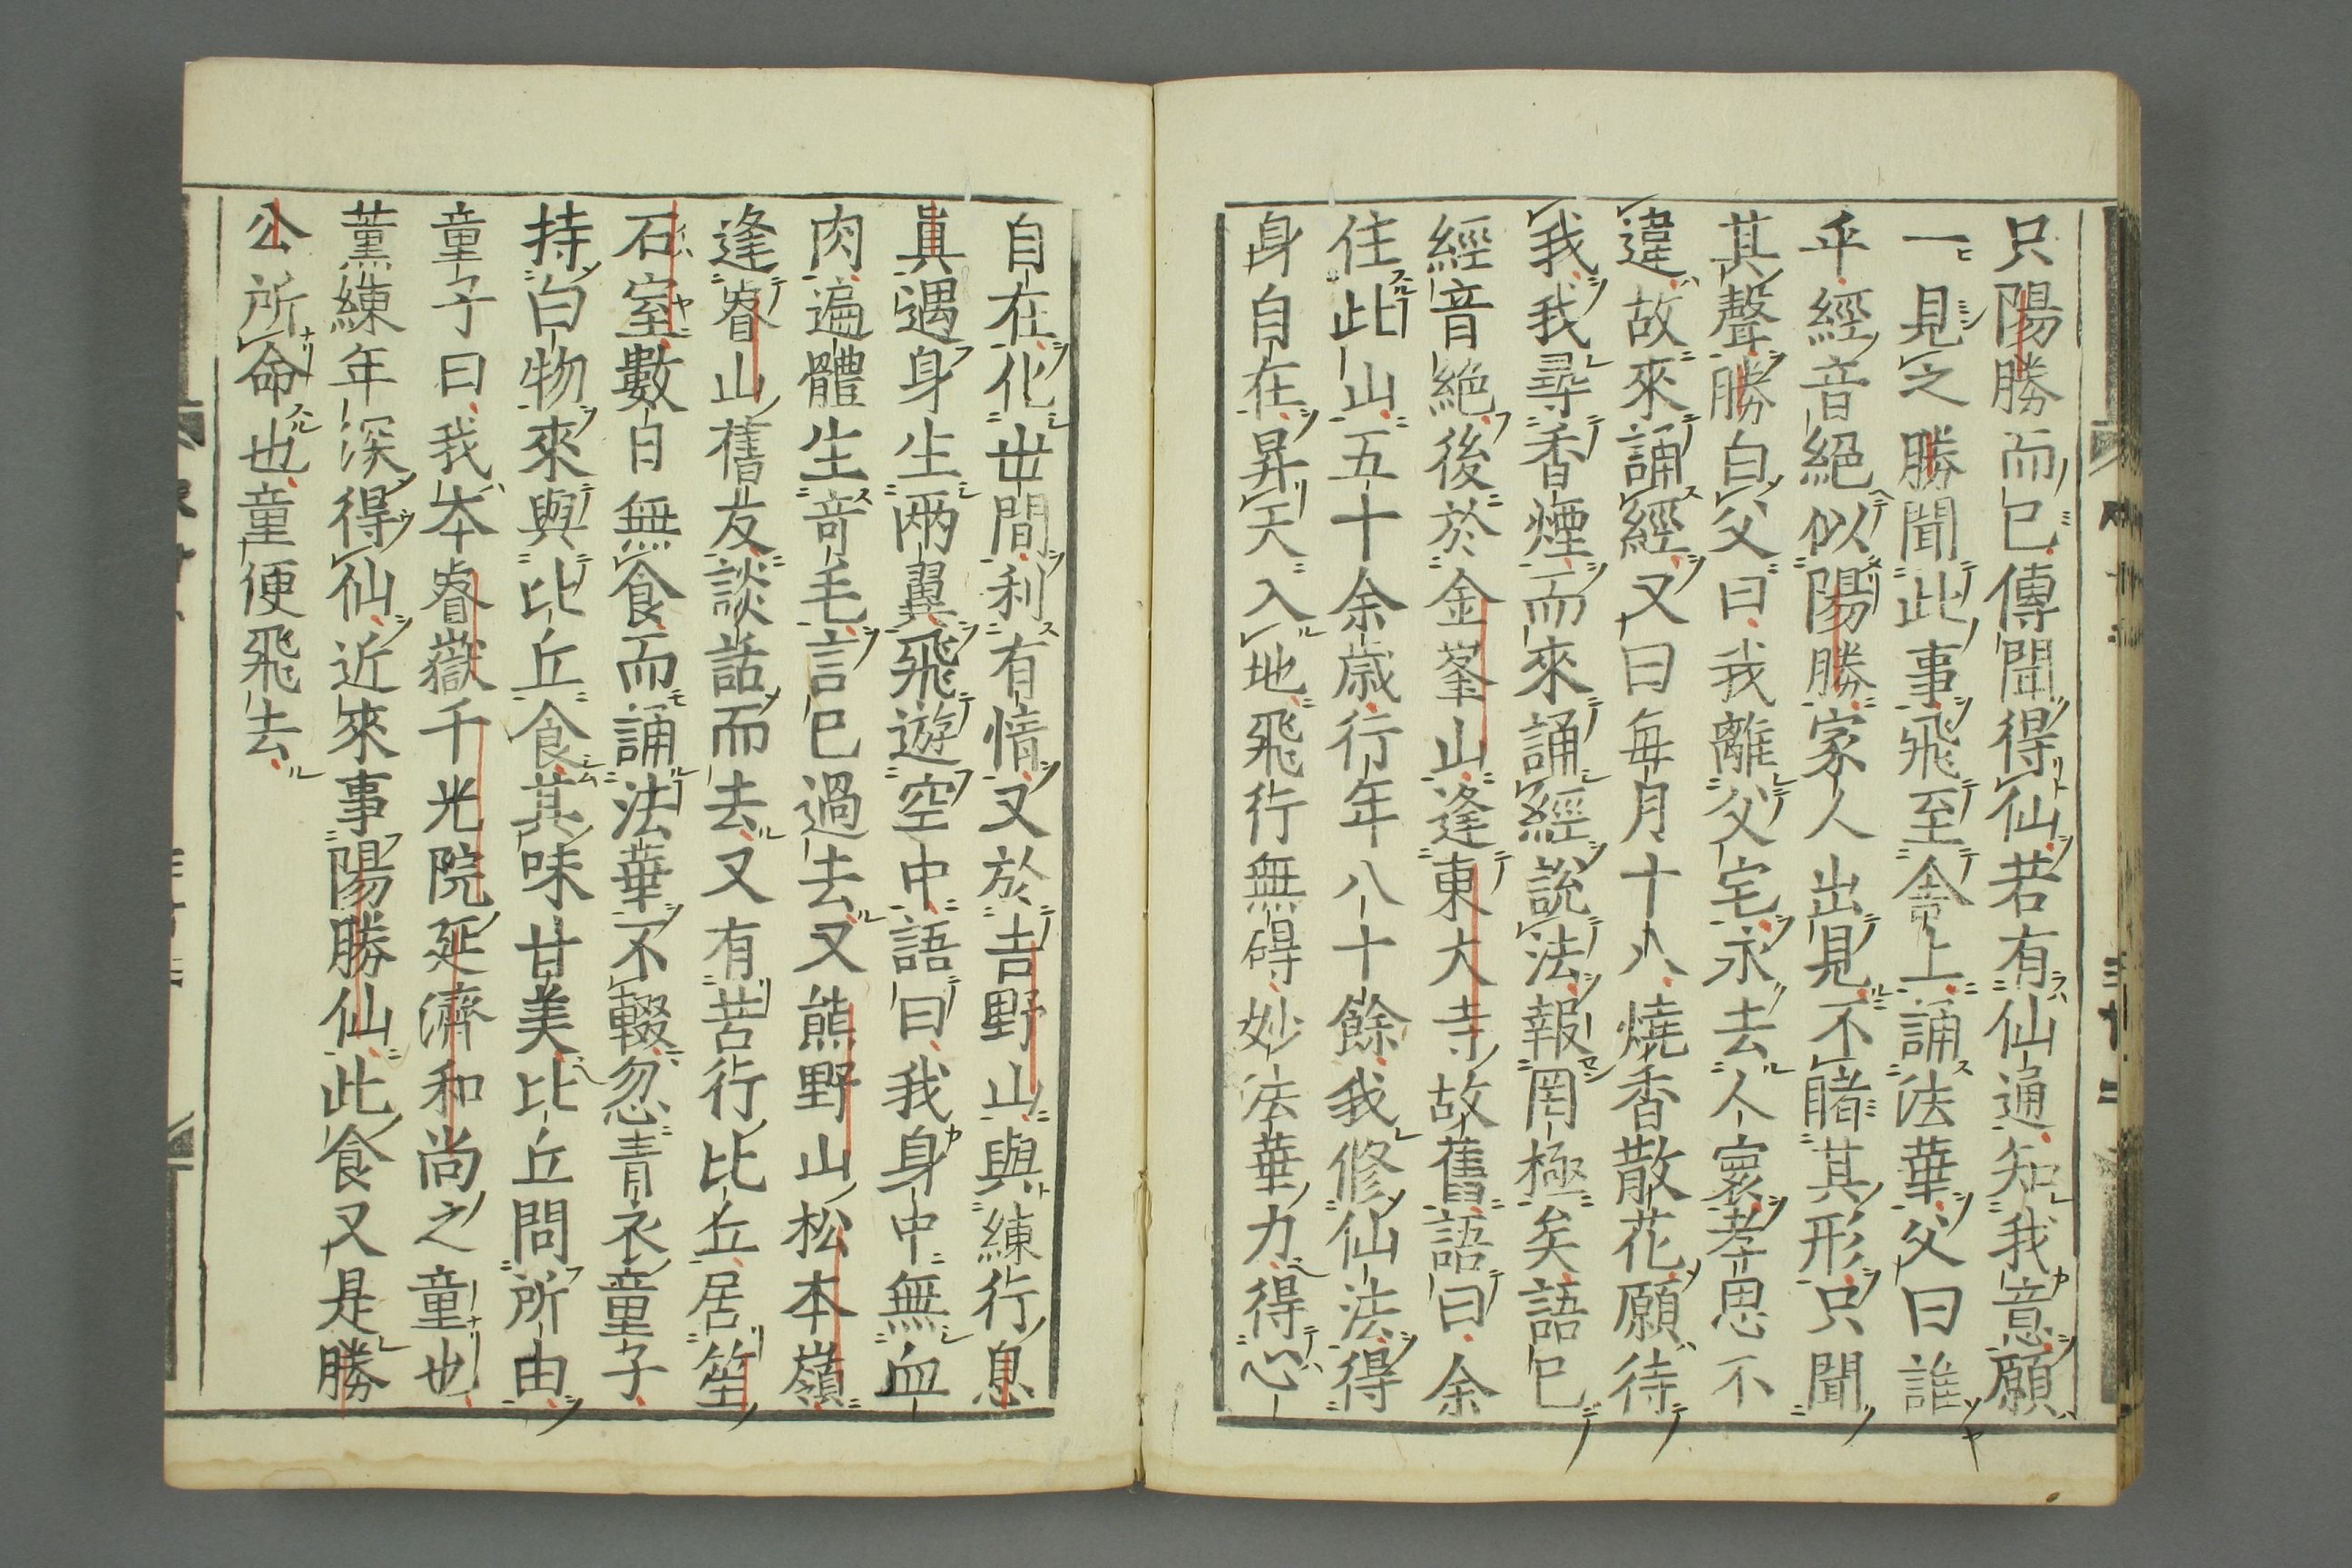 只陽勝而已傳聞得仙若有仙通知我意願
一見之勝聞此事飛至舍上誦法華父曰誰
乎經音絕似陽勝家人出見不睹其形只聞
其聲勝白父曰我離父宅永去人寰孝思不
違故來誦經又曰每月十八燒香散花願待
我我尋香煙而來誦經說法報罔極矣語已
經音絕後於金峯山逢東大寺故舊語曰余
住此山五十余歲行年八十餘我修仙法得
身自在昇天入地飛行無碍妙法華力得心
自在化世間利有情又於吉野山與練行息
眞遇身生兩翼飛遊空中語曰我身中無血
肉遍體生竒毛言已過去又熊野山松本嶺
逢睿山舊友談話而去又有苦行比丘居笙
石室數日無食而誦法華不輟忽青衣童子
持白物來與比丘食其味甘美比丘問所由
童子曰我本睿嶽千光院延濟和尚之童也
薰練年深得仙近來事陽勝仙此食又是勝
公所命也童便飛去